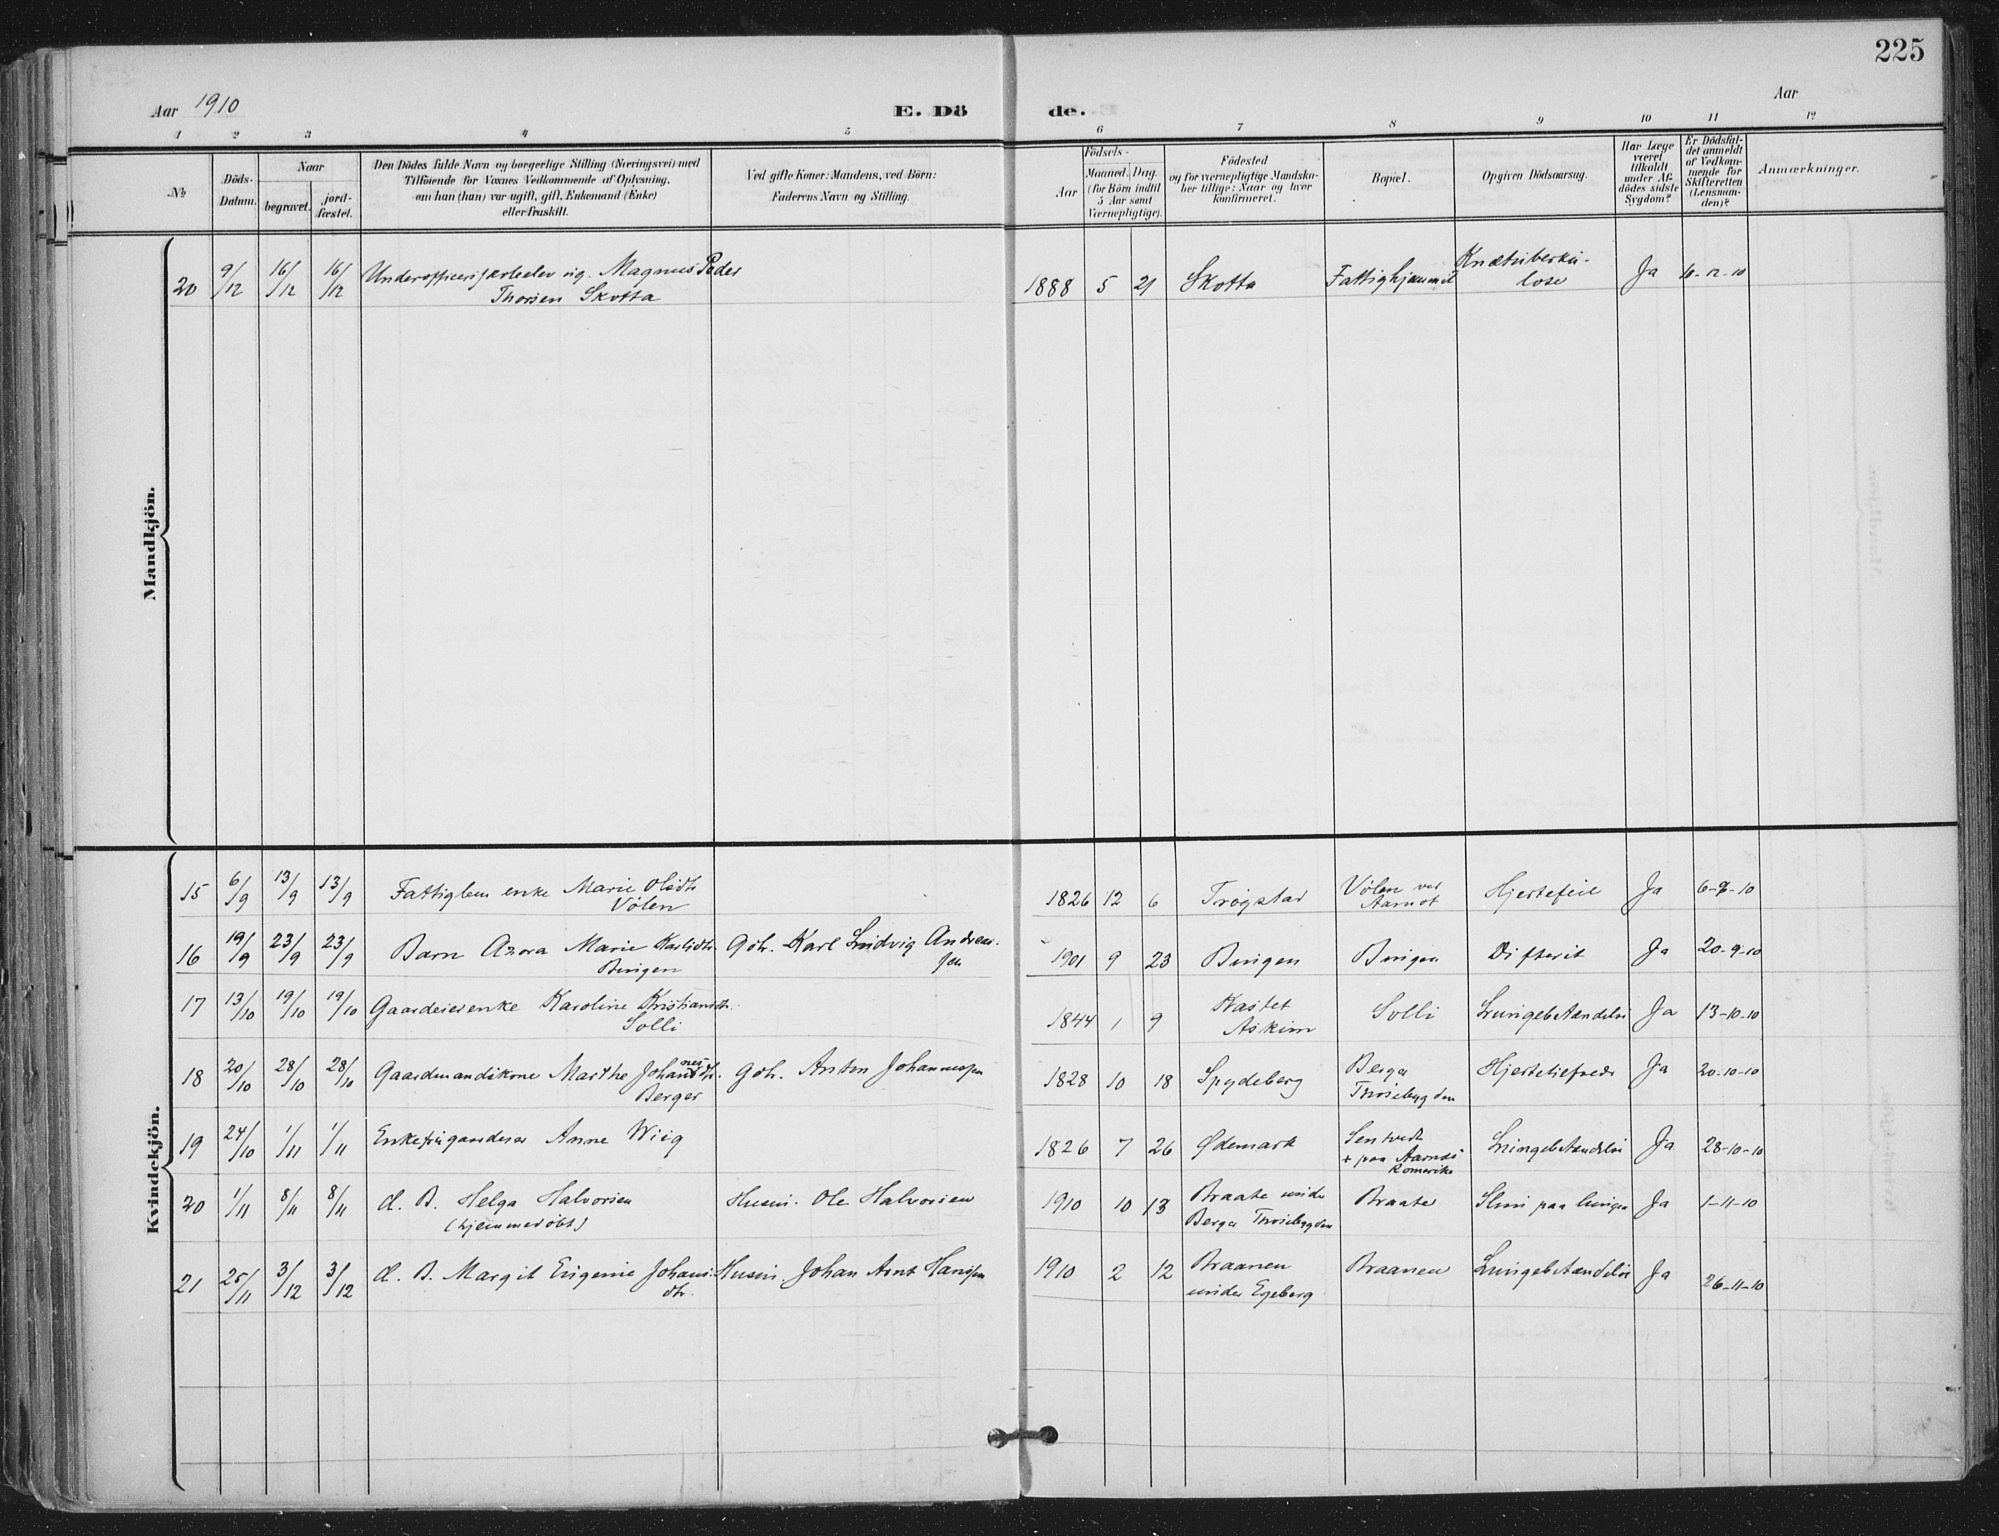 225
Aar 1910
E. Dö
de.
Aar
1 2 3 4 5 6 7 8 9 10 11 12
No
Döds-
Datum.
Naar
begravet.
jord-
fæstet.
Den Dödes fulde Navn og borgerlige Stilling (Næringsvei) med
Tilföiende for Voxnes Vedkommende af Oplysning,
om han (hun) var ugift, gift, Enkemand (Enke)
eller fraskilt.
Ved gifte Koner: Mandens, ved Börn:
Faderens Navn og Stilling.
Födsels-
Aar
Maaned. Dag.
(for Börn indtil
5 Aar samt
Værnepligtige).
Födested
og for værnepligtige Mandska-
ber tillige: Naar og hvor
konfirmeret.
Bopæl.
Opgiven Dödsaarsag.
Har Læge
været
tilkaldt
under Af-
dödes sidste
Sygdom?
Er Dödsfal-
det anmeldt
af Vedkom-
mende for
Skifteretten
(Lensman-
den)?
Anmærkninger.
Mandkjön.
20 9/12 16/12 16/12 Magnus Peder
Thorsen Skotta
1888 5 21 Skotta Fattighjemmet Knætuberku-
lose Ja 12-10
Kvindekjön.
15 6/9 13/9 13/9 Fattiglem enke Marie Olsdtr
Vølen
1826 12 6 Trøgstad Vølen ved
Aamot Hjertefeil Ja 10
16 19/9 23/9 23/9 Barn Azora Marie Karlsdtr. Gbr. Karl Ludvig Andrea-
sen
Bingen
1901 9 23 Bingen Bingen Difterit Ja 20-9-10
17 13/10 19/10 19/10 Gaardeierenke Karoline Kristiansdtr.
Solli
1844 1 9 Kastet
Askim Solli Lungebetændelse Ja 13-10-10
18 20/10 28/10 28/10 Gaardmandskone Marthe Johannesdtr. Gbr. Anton Johannessen
Berger
1828 10 18 Spydeberg Berger
Thosebygden Ja 20-10-10
19 24/10 1/11 1/11 Anne Wiig
1826 7 26 Ødemark
+ paa Aarnæs
Romerike Lungebetændelse Ja 28-10-10
20 1/11 8/11 8/11 d. B. Helga Halvorsen Husm. Ole Halvorsen
(hjemmedøbt)
1910 10 13 Braate under
Berger Thosebygden Braate Slim paa lungen Ja 1-11-10
21 25/11 3/12 3/12 d. B. Margit Eugenie Johans-
dtr. Husm. Johan Arnt Hansen
1910 2 12 Braanen
under Egeberg Braanen Lungebetændelse Ja 26-11-10